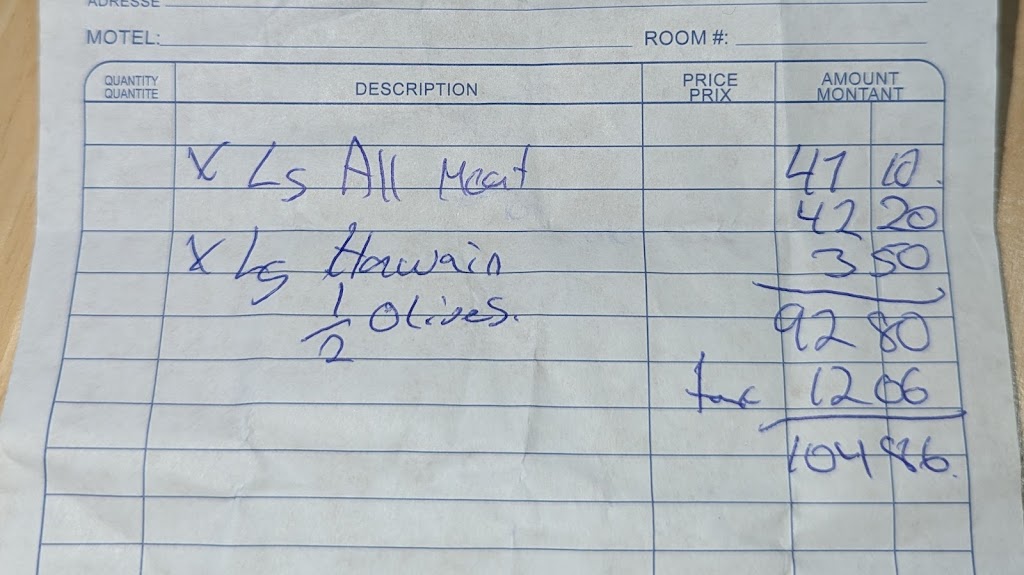 ADRESSE
MOTEL: ROOM #:
QUANTITY QUANTITE DESCRIPTION PRICE PRIX AMOUNT MONTANT
X Lg All Meat 47 10.
42 20
X Lg Hawain 3 50
1/2 Olives. 92 80
tax 12 06
104 86.